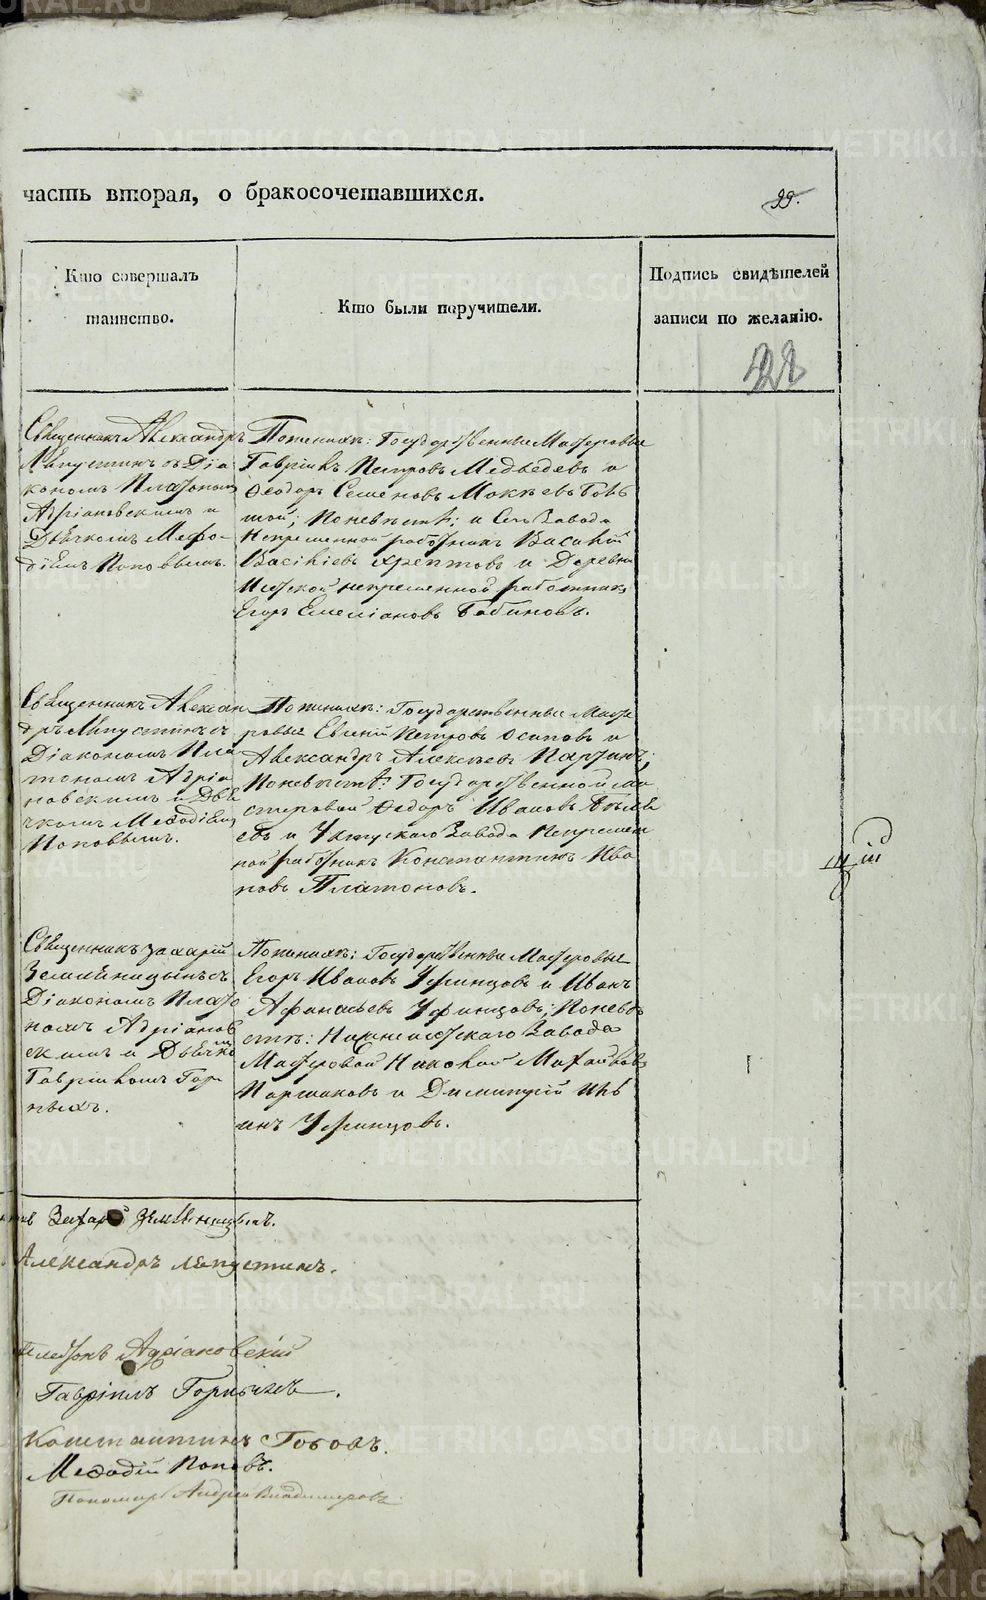 часть вторая, о бракосочетавшихся.
99.
Кто совершалъ
таинство.
Кто были поручители.
Подпись свидѣтелей
записи по желанію.
Священникъ Александръ
Діа
кономъ Платономъ
Адріановскимъ и
Дьячкомъ Мефо-
діемъ Поповымъ.
По женихѣ: Государственные Мастеровые
Гавріилъ Петровъ Медведевъ и
Феодоръ Семеновъ
по невѣстѣ: и Сего Завода
Непременной работникъ Василій
Васильевъ Хрептовъ и Деревни
непременной работникъ
Егоръ Емеліановъ Бабиновъ.
Священникъ Алексан
дръ Ляпустинъ съ
Діакономъ Пла
тономъ Адріа
новскимъ и Дья
чкомъ Мефодіемъ
Поповымъ.
По женихѣ: Государственные Масте
ровые Петровъ Осиповъ и
Александръ Алексѣевъ
По невѣстѣ: Государственной ма
стеровой Федоръ Ивановъ
евъ и Уктускаго Завода Непремен
ной работникъ Константинъ Ива
новъ Платоновъ.
Священникъ Захарій
Земляницынъ съ
Діакономъ Плато
номъ Адріанов
скимъ и Дьячко
Гавріиломъ Гор
ныхъ.
По женихѣ: Государственные Мастеровые
Егоръ Ивановъ Уфинцовъ и Иванъ
Афанасьевъ Уфинцовъ; По невѣ
стѣ: Нижнеисетскаго Завода
Мастеровой Николай Михайловъ
Паршаковъ и Димитрій
Уфинцовъ.
Захарій Земляницынъ.
Александръ Ляпустинъ.
Платонъ Адріановскій
Гавріилъ Горныхъ.
Константинъ
Мефодій Поповъ.
Пономарь Андрей Владимировъ
METRIKI.GASO-URAL.RU